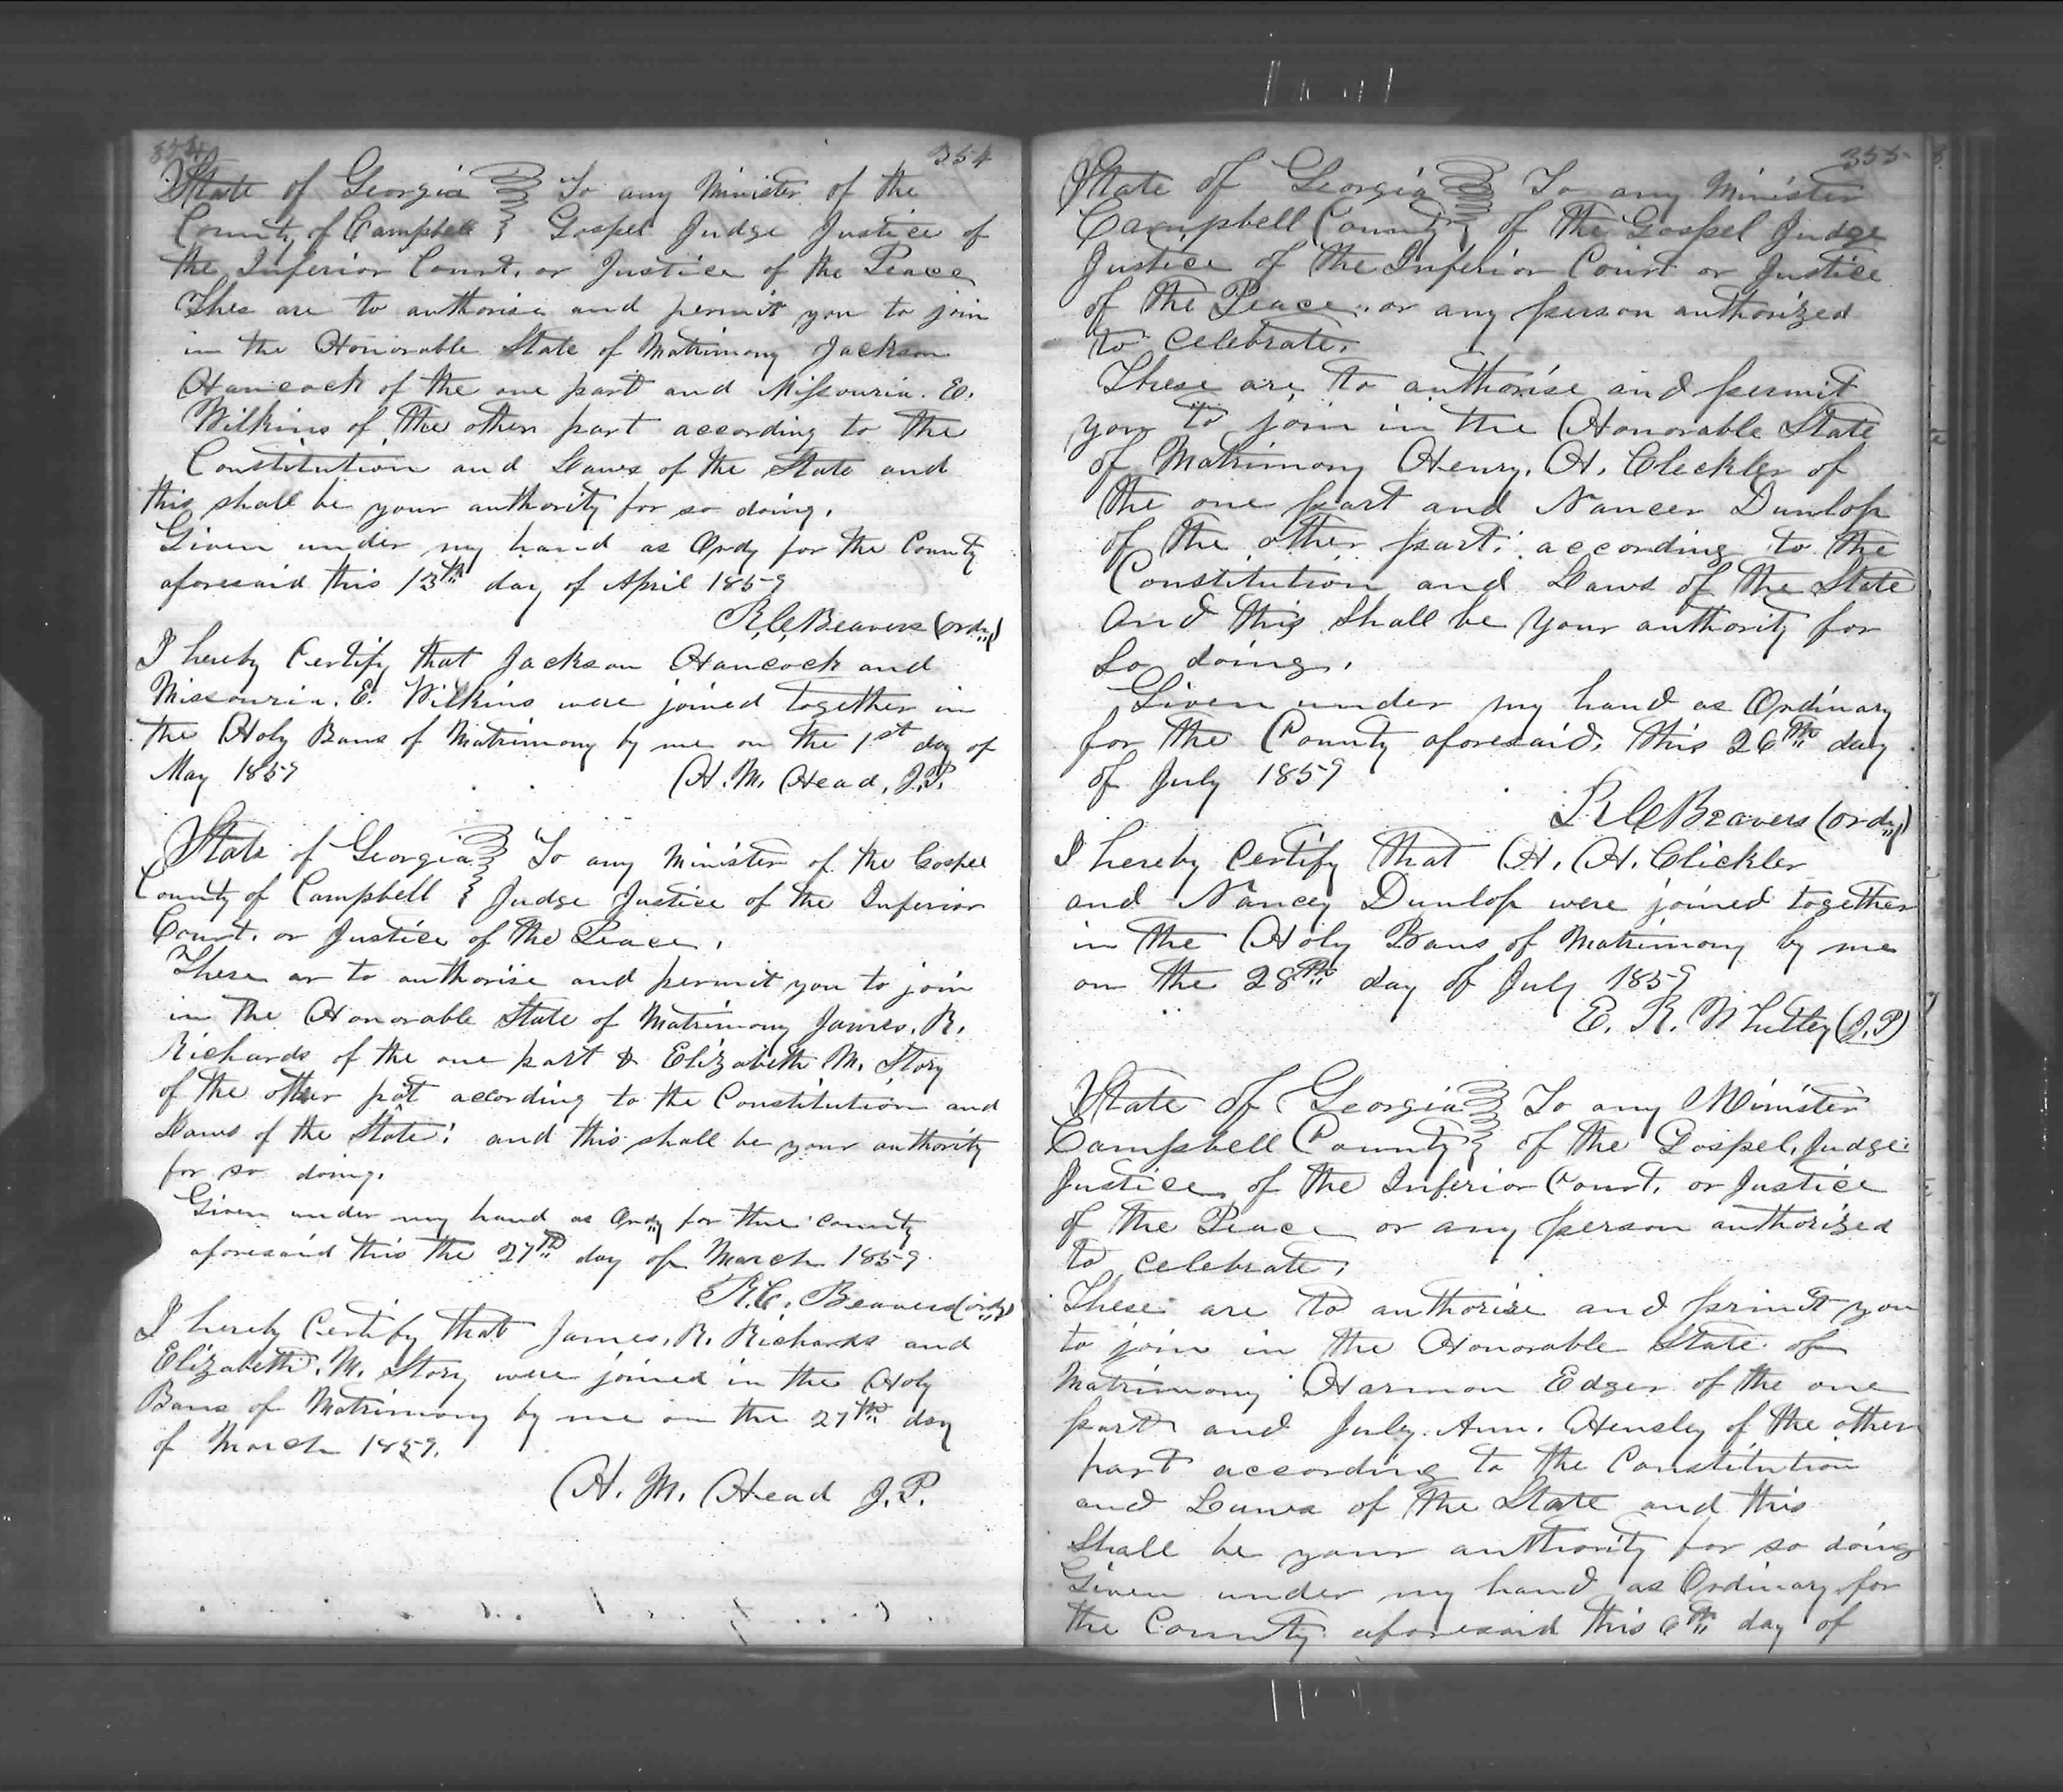 354
354
State of Georgia To any Minister of the
County of Campbell Gospel Judge Justice of
the Inferior Court, or Justice of the Peace
Thes are to authorise and permit you to join
in the Honorable State of Matrimony Jackson
Hancock of the one part and Missouria. E.
Wilkins of the other part according to the
Constitution and Laws of the State and
this shall be your authority for so doing.
Given under my hand as Ordy for the County
aforesaid this 13th day of April 1859
R. C. Beavers (ordy)
I hereby Certify that Jackson Hancock and
Missouria. E. Wilkins were joined together in
the Holy Bans of Matrimony by me on the 1st day of
May 1859 H. M. Head, J.P.
State of Georgia To any Minister of the Gospel
County of Campbell Judge Justice of the Inferior
Court, or Justice of the Peace,
These ar to authorise and permit you to join
in the Honorable State of Matrimony James. R.
Richards of the one part & Elizabeth M. Story
of the other part according to the Constitution and
Laws of the State; and this shall be your authority
for so doing.
Given under my hand as Ordy for the county
aforesaid this the 27th day of March 1859.
R. C. Beavers (ordy)
I hereby Certify that James. R. Richards and
Elizabeth. M. Story were joined in the Holy
Bans of Matrimony by me on the 27th day
of March 1859.
H. M. Head J.P.
355
State of Georgia To any Minister
Campbell County of the Gospel Judge
Justice of the Inferior Court or Justice
of the Peace, or any person authorized
to celebrate.
These are to authorise and permit
you to join in the Honorable State
of Matrimony Henry. H. Cleckler of
the one part and Nancer Dunlop
of the other part, according to the
Constitution and Laws of the State
and this shall be your authority for
so doing.
Given under my hand as Ordinary
for the County aforesaid, this 26th day
of July 1859
R C Beavers (ordy)
I hereby Certify that H. H. Clickler
and Nancy Dunlop were joined together
in the Holy Bans of Matrimony by me
on the 28th day of July 1859
E. R. Whitley (J.P)
State of Georgia To any Minister
Campbell County of the Gospel, Judge
Justice, of the Inferior Court, or Justice
of the Peace or any person authorized
to celebrate,
These are to authorise and primit you
to join in the Honorable State of
Matrimony Harmon Edger of the one
part and July Ann. Hensley of the other
part according to the Constitution
and Laws of the State and this
shall be your authority for so doing
Given under my hand as Ordinary for
the County aforesaid this 6th day of